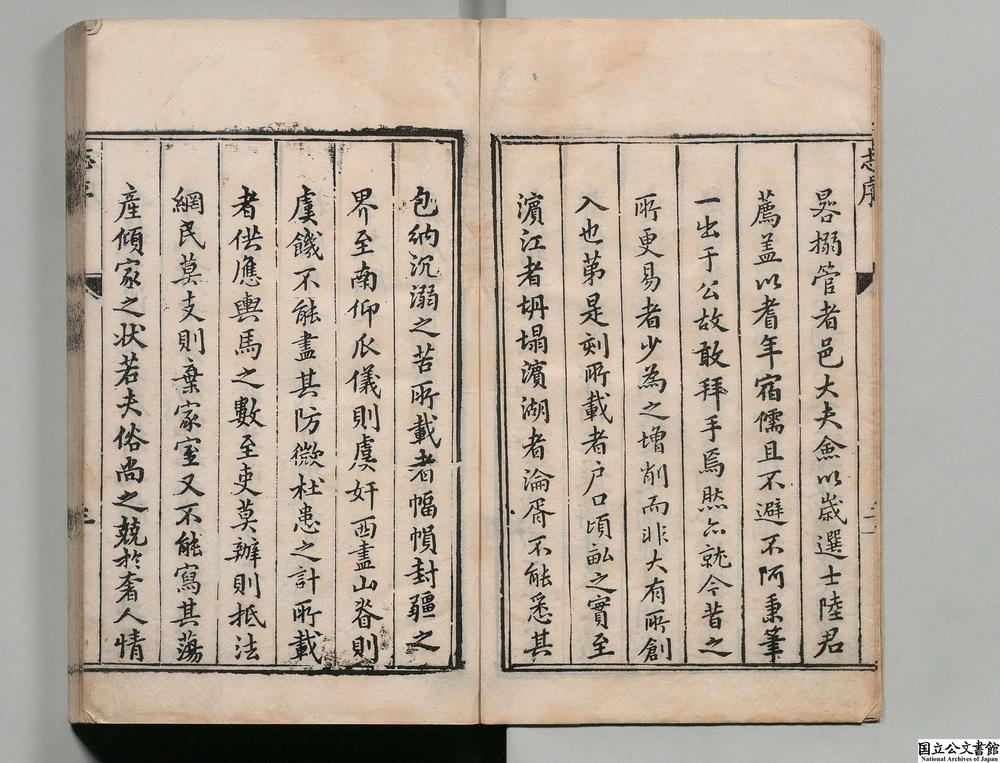 志序
晷搦管者邑大夫僉以歲選士陸君
薦盖以耆年宿儒且不避不阿秉筆
一出于公故敢拜手焉然亦就今昔之
所更易者少為之增削而非大有所創
入也苐是刻所載者户口頃畝之實至
濵江者坍塌濵湖者淪胥不能悉其
包納沉溺之苦所載者幅㡐封疆之
界至南仰瓜儀則虞奸西盡山脊則
虞饑不能盡其防微杜患之計所載
者供應輿馬之數至吏莫辦則抵法
網民莫支則棄家室又不能寫其蕩
產傾家之状若夫俗尚之競於奢人情
志序
三
国立公文書館
National Archives of Japan